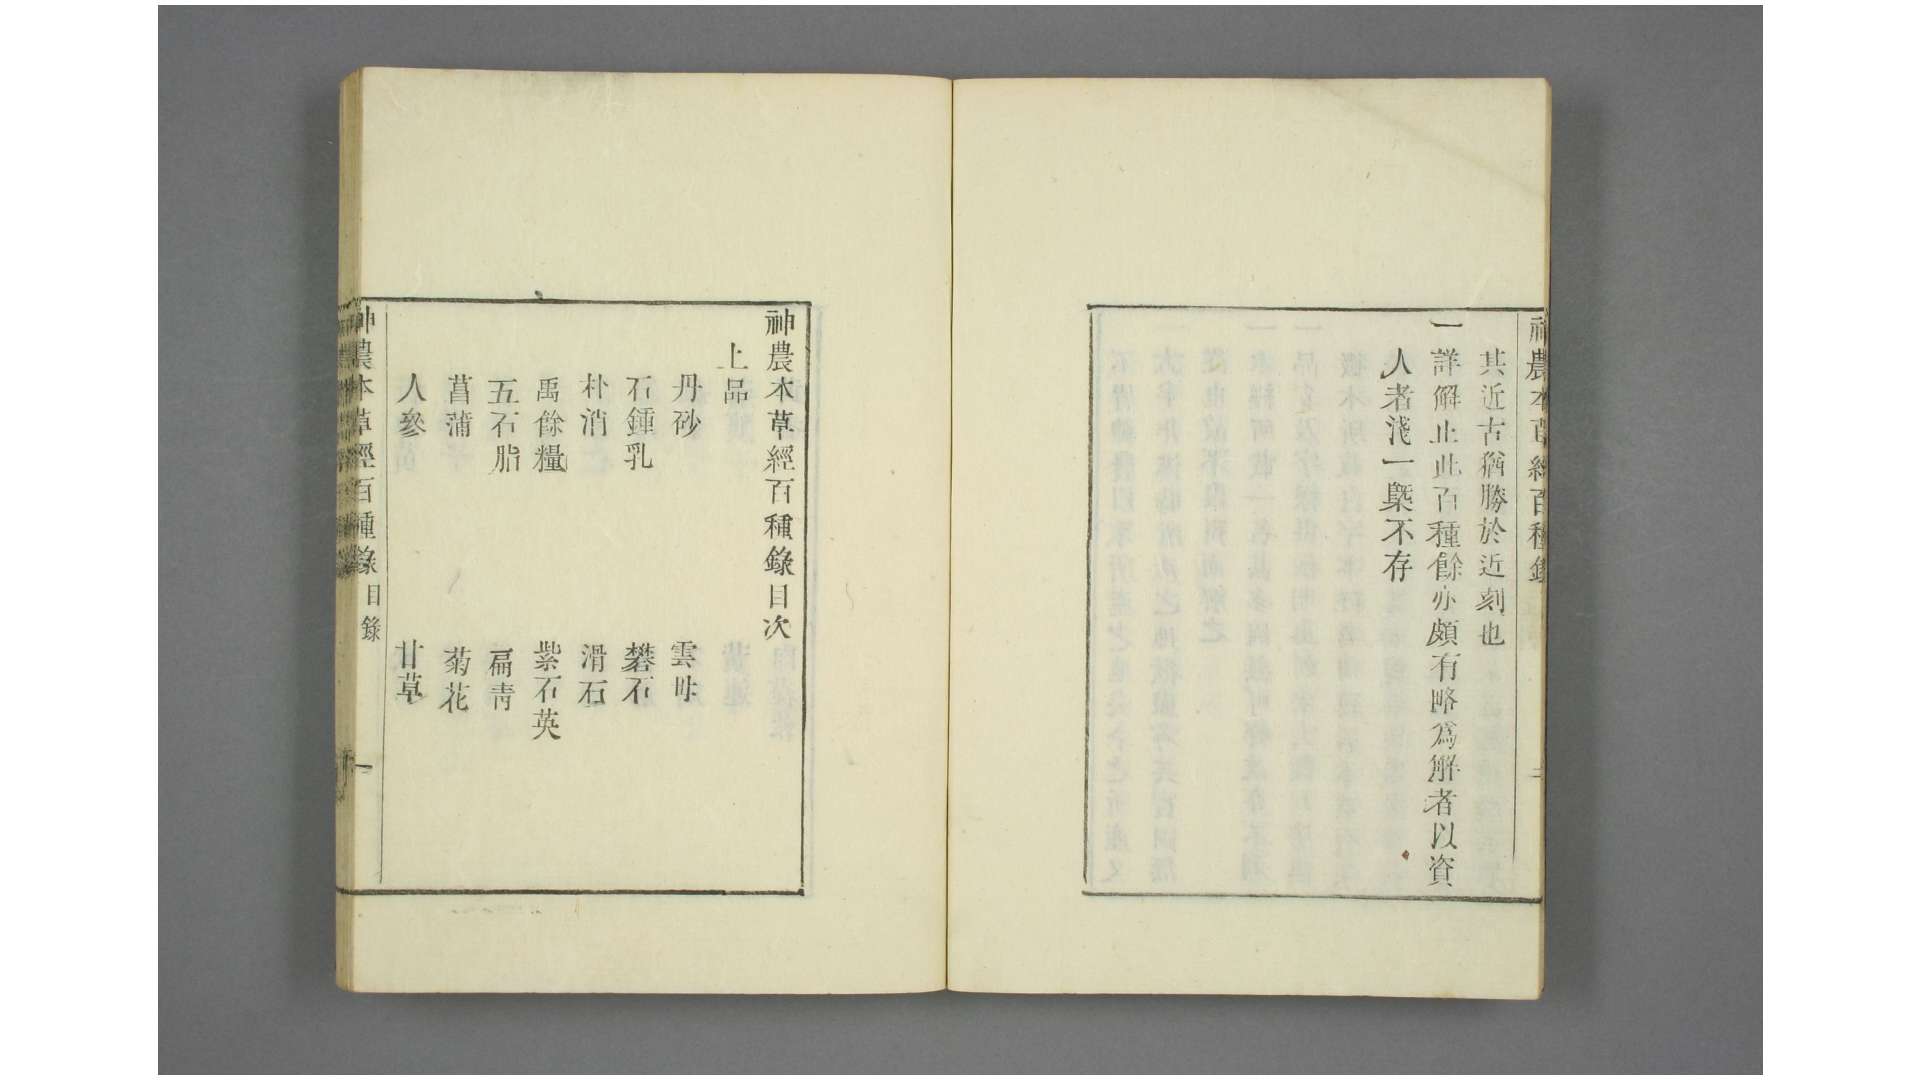 神農本草經百種錄 二
其近古猶勝於近刻也
一詳解止此百種餘亦頗有略爲解者以資
人者淺一槩不存
神農本草經百種錄目次
上品
丹砂 雲母
石鍾乳 礬石
朴消 滑石
禹餘糧 紫石英
五石脂 扁青
菖蒲 菊花
人參 甘草
神農本草經百種錄 目錄 一